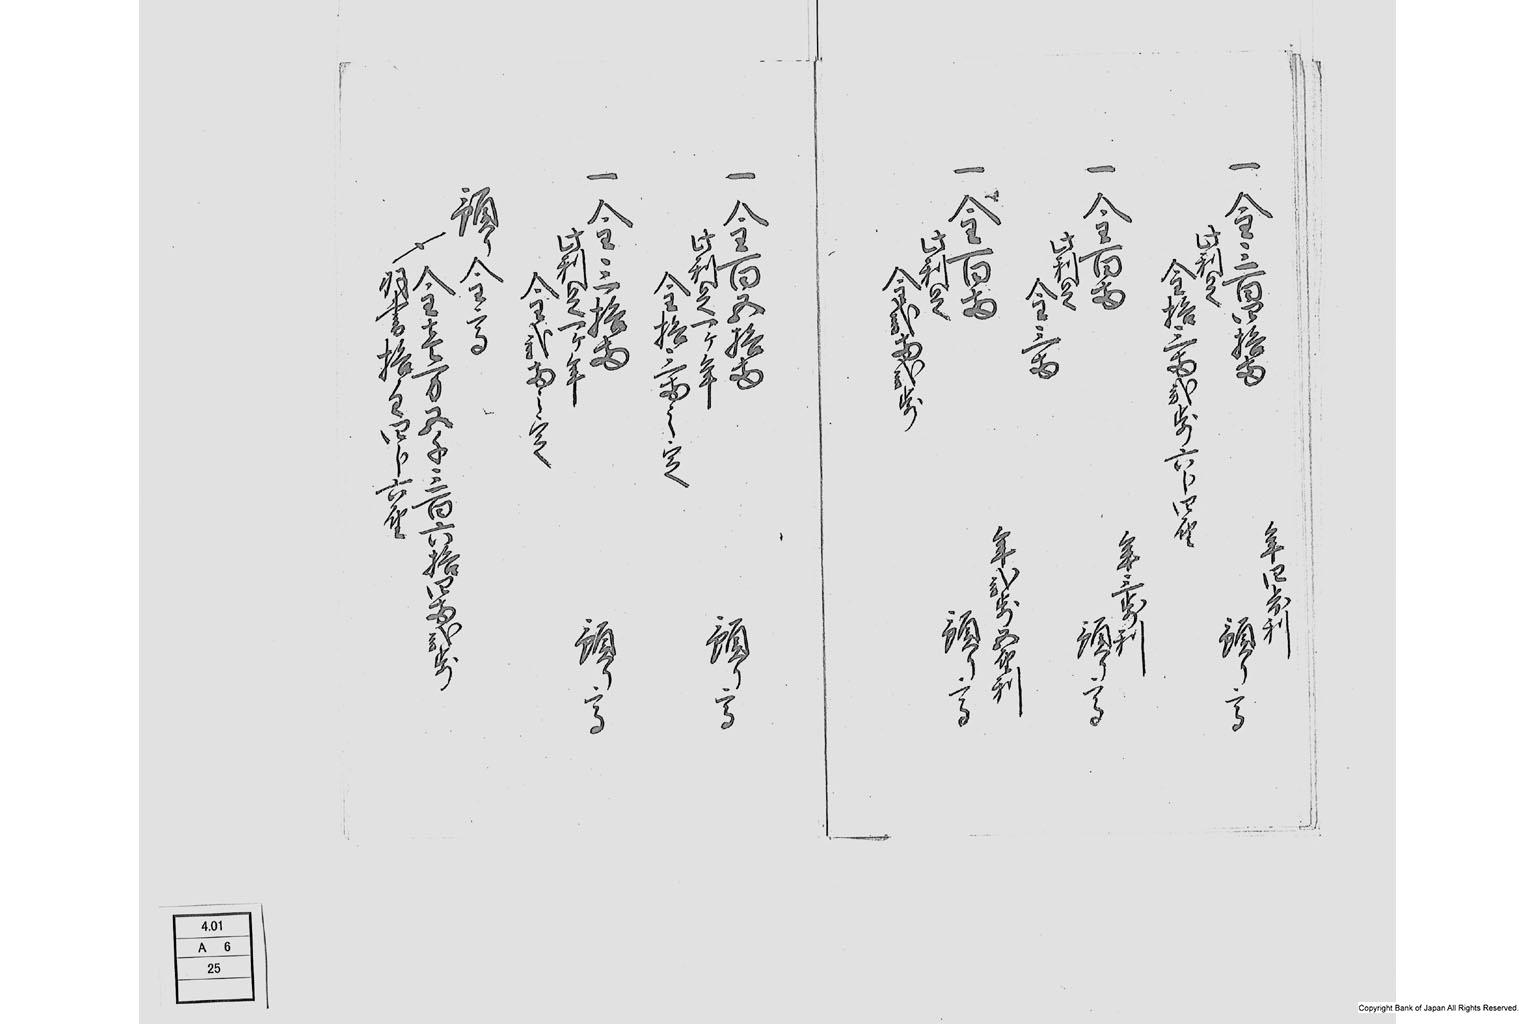 年四歩利
一 金三百四拾両 預り高
此利足
金拾三両弐歩六分四厘
年三歩利
一 金百両 預り高
此利足
金三両
年弐歩五厘利
一 金百両 預り高
此利足
金弐両弐歩
一 金百五拾両 預り高
此利足一ヶ年
金拾三両之定
一 金三拾両 預り高
此利足一ヶ年
金弐両之定
預り金高
〆金壱万五千三百六拾四両弐歩
羽書拾匁四分六厘
4.01
A 6
25
Copyright Bank of Japan All Rights Reserved.